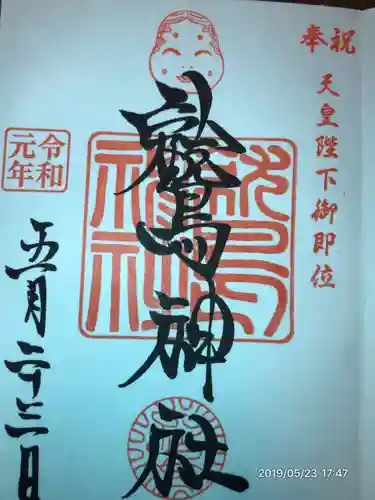 奉祝
天皇陛下御即位
鷲神社
鷲神社
令和元年
五月二十三日
2019/05/23 17:47